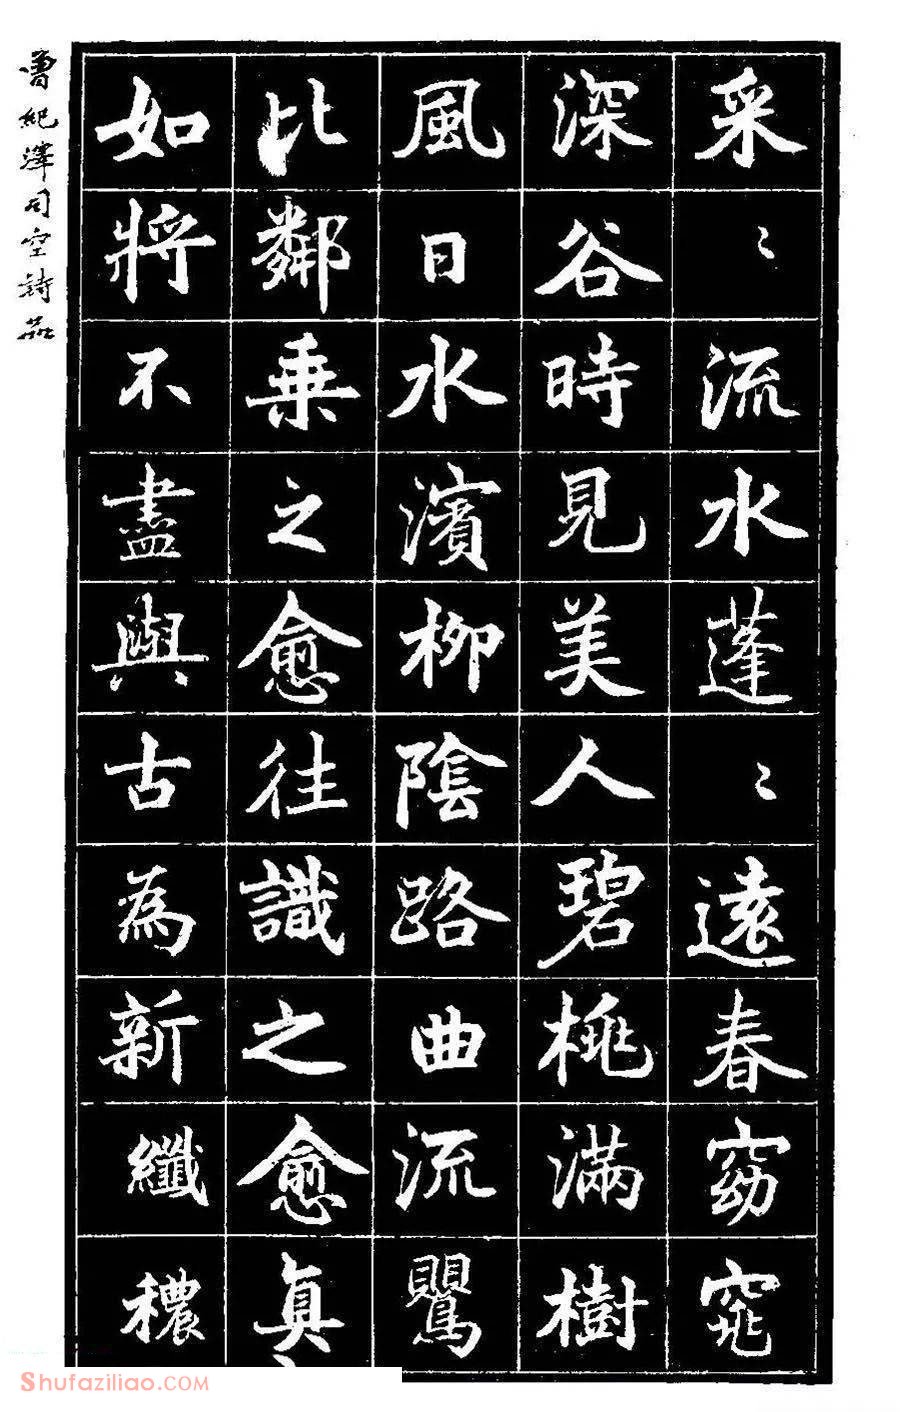 采〻流水蓬〻遠春窈窕
深谷時見美人碧桃滿樹
風日水濱柳陰路曲流鸎
比鄰乗之愈往識之愈真
如將不盡與古為新纖穠
曾紀澤司空詩品
Shufaziliao.COM